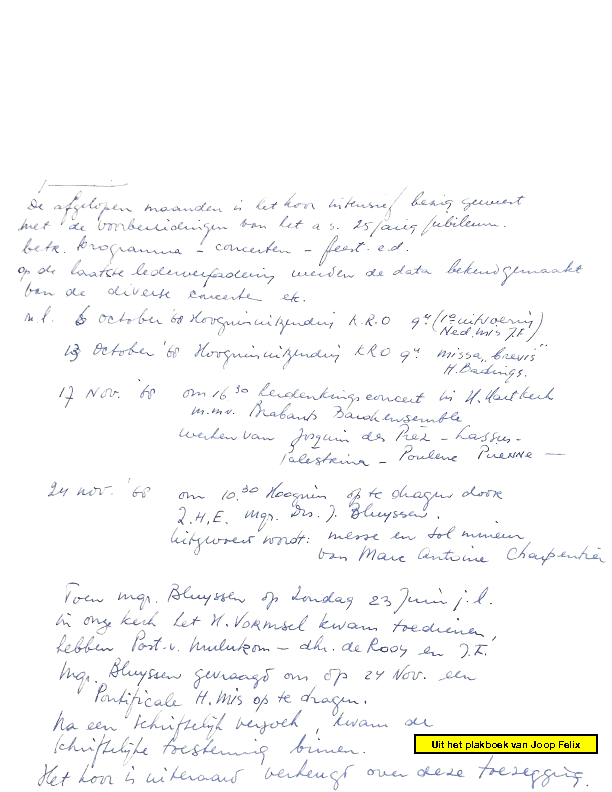 De afgelopen maanden is het koor intensief bezig geweest
met de voorbereidingen van het a.s. 25 jarig jubileum.
betr. programma - concerten - feest e.d.
op de laatste ledenvergadering werden de data bekendgemaakt
van de diverse concerten etc.
n.l. 6 october '68 Hoogmisuitzending K.R.O 9 u (1e uitvoering
Ned. mis J.F)
13 October '68 Hoogmisuitzending KRO 9 u missa "brevis"
H. Badings.
17 Nov. '68 om 16 30 herdenkingsconcert in H. Hartkerk
m.m.v. Brabants Barokensemble
werken van Josquin des Préz - Lassus -
Palestrina - Poulenc
24 nov. '68 om 10.30 Hoogmis op te dragen door
Z.H.E. mgr. Drs. J. Bluyssen.
Uitgevoerd wordt: messe en sol mineur
van Marc Antoine Charpentier
Toen mgr. Bluyssen op Zondag 23 Juni j.l.
in onze kerk het H. Vormsel kwam toedienen,
hebben Past. v. - dhr. de Rooy en J.F.
Mgr. Bluyssen gevraagd om op 24 Nov. een
Pontificale H. Mis op te dragen.
Na een schriftelijk verzoek, kwam de
schriftelijke toestemming binnen.
Het koor is uiteraard verheugd over deze toezegging.
Uit het plakboek van Joop Felix